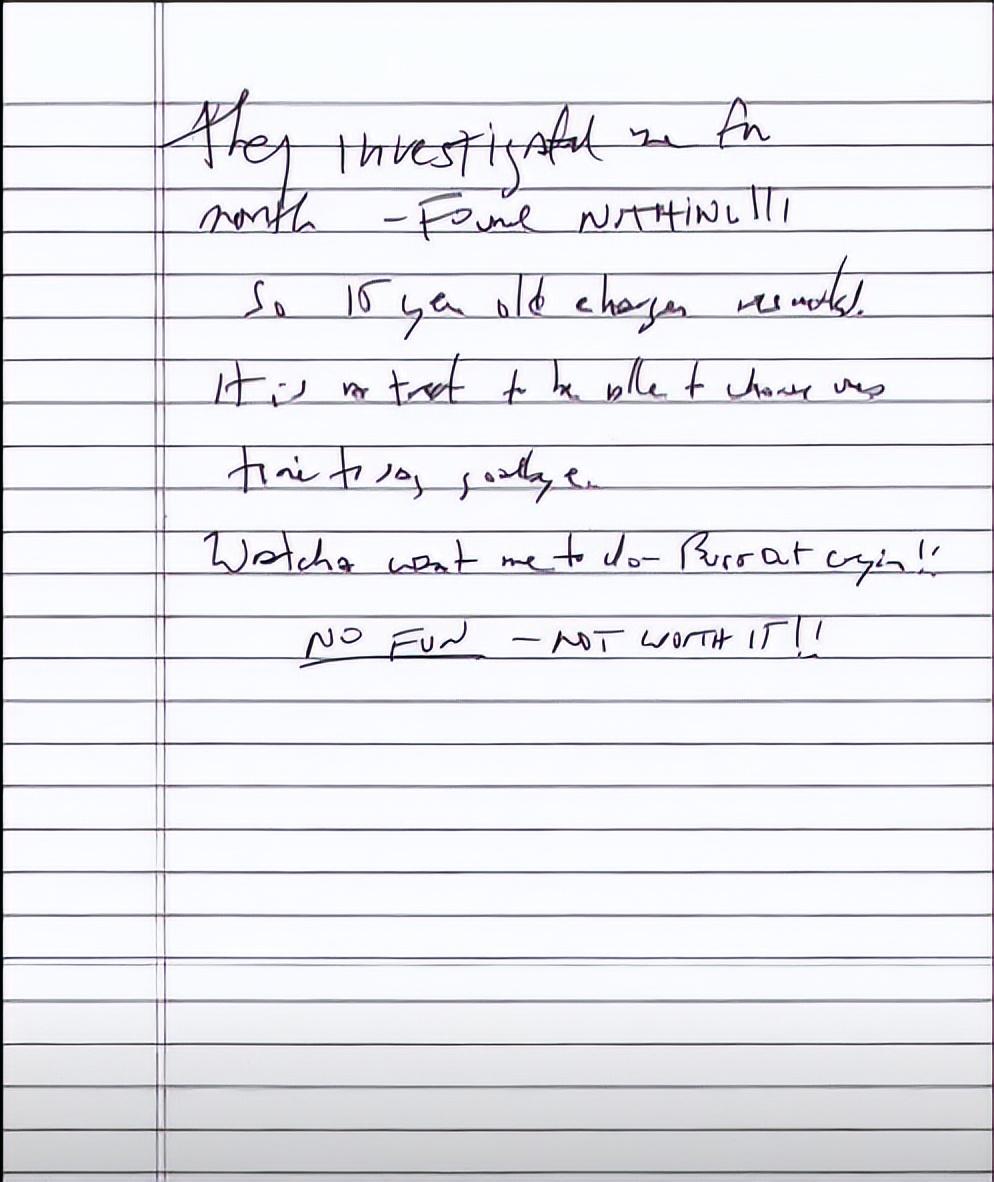 They investigated me for
month - Found NOTHING!!!
So 15 year old charges
It is to be able to choose
time to say goodbye.
Watcha want me to do - Burst out cryin!!
NO FUN - NOT WORTH IT!!